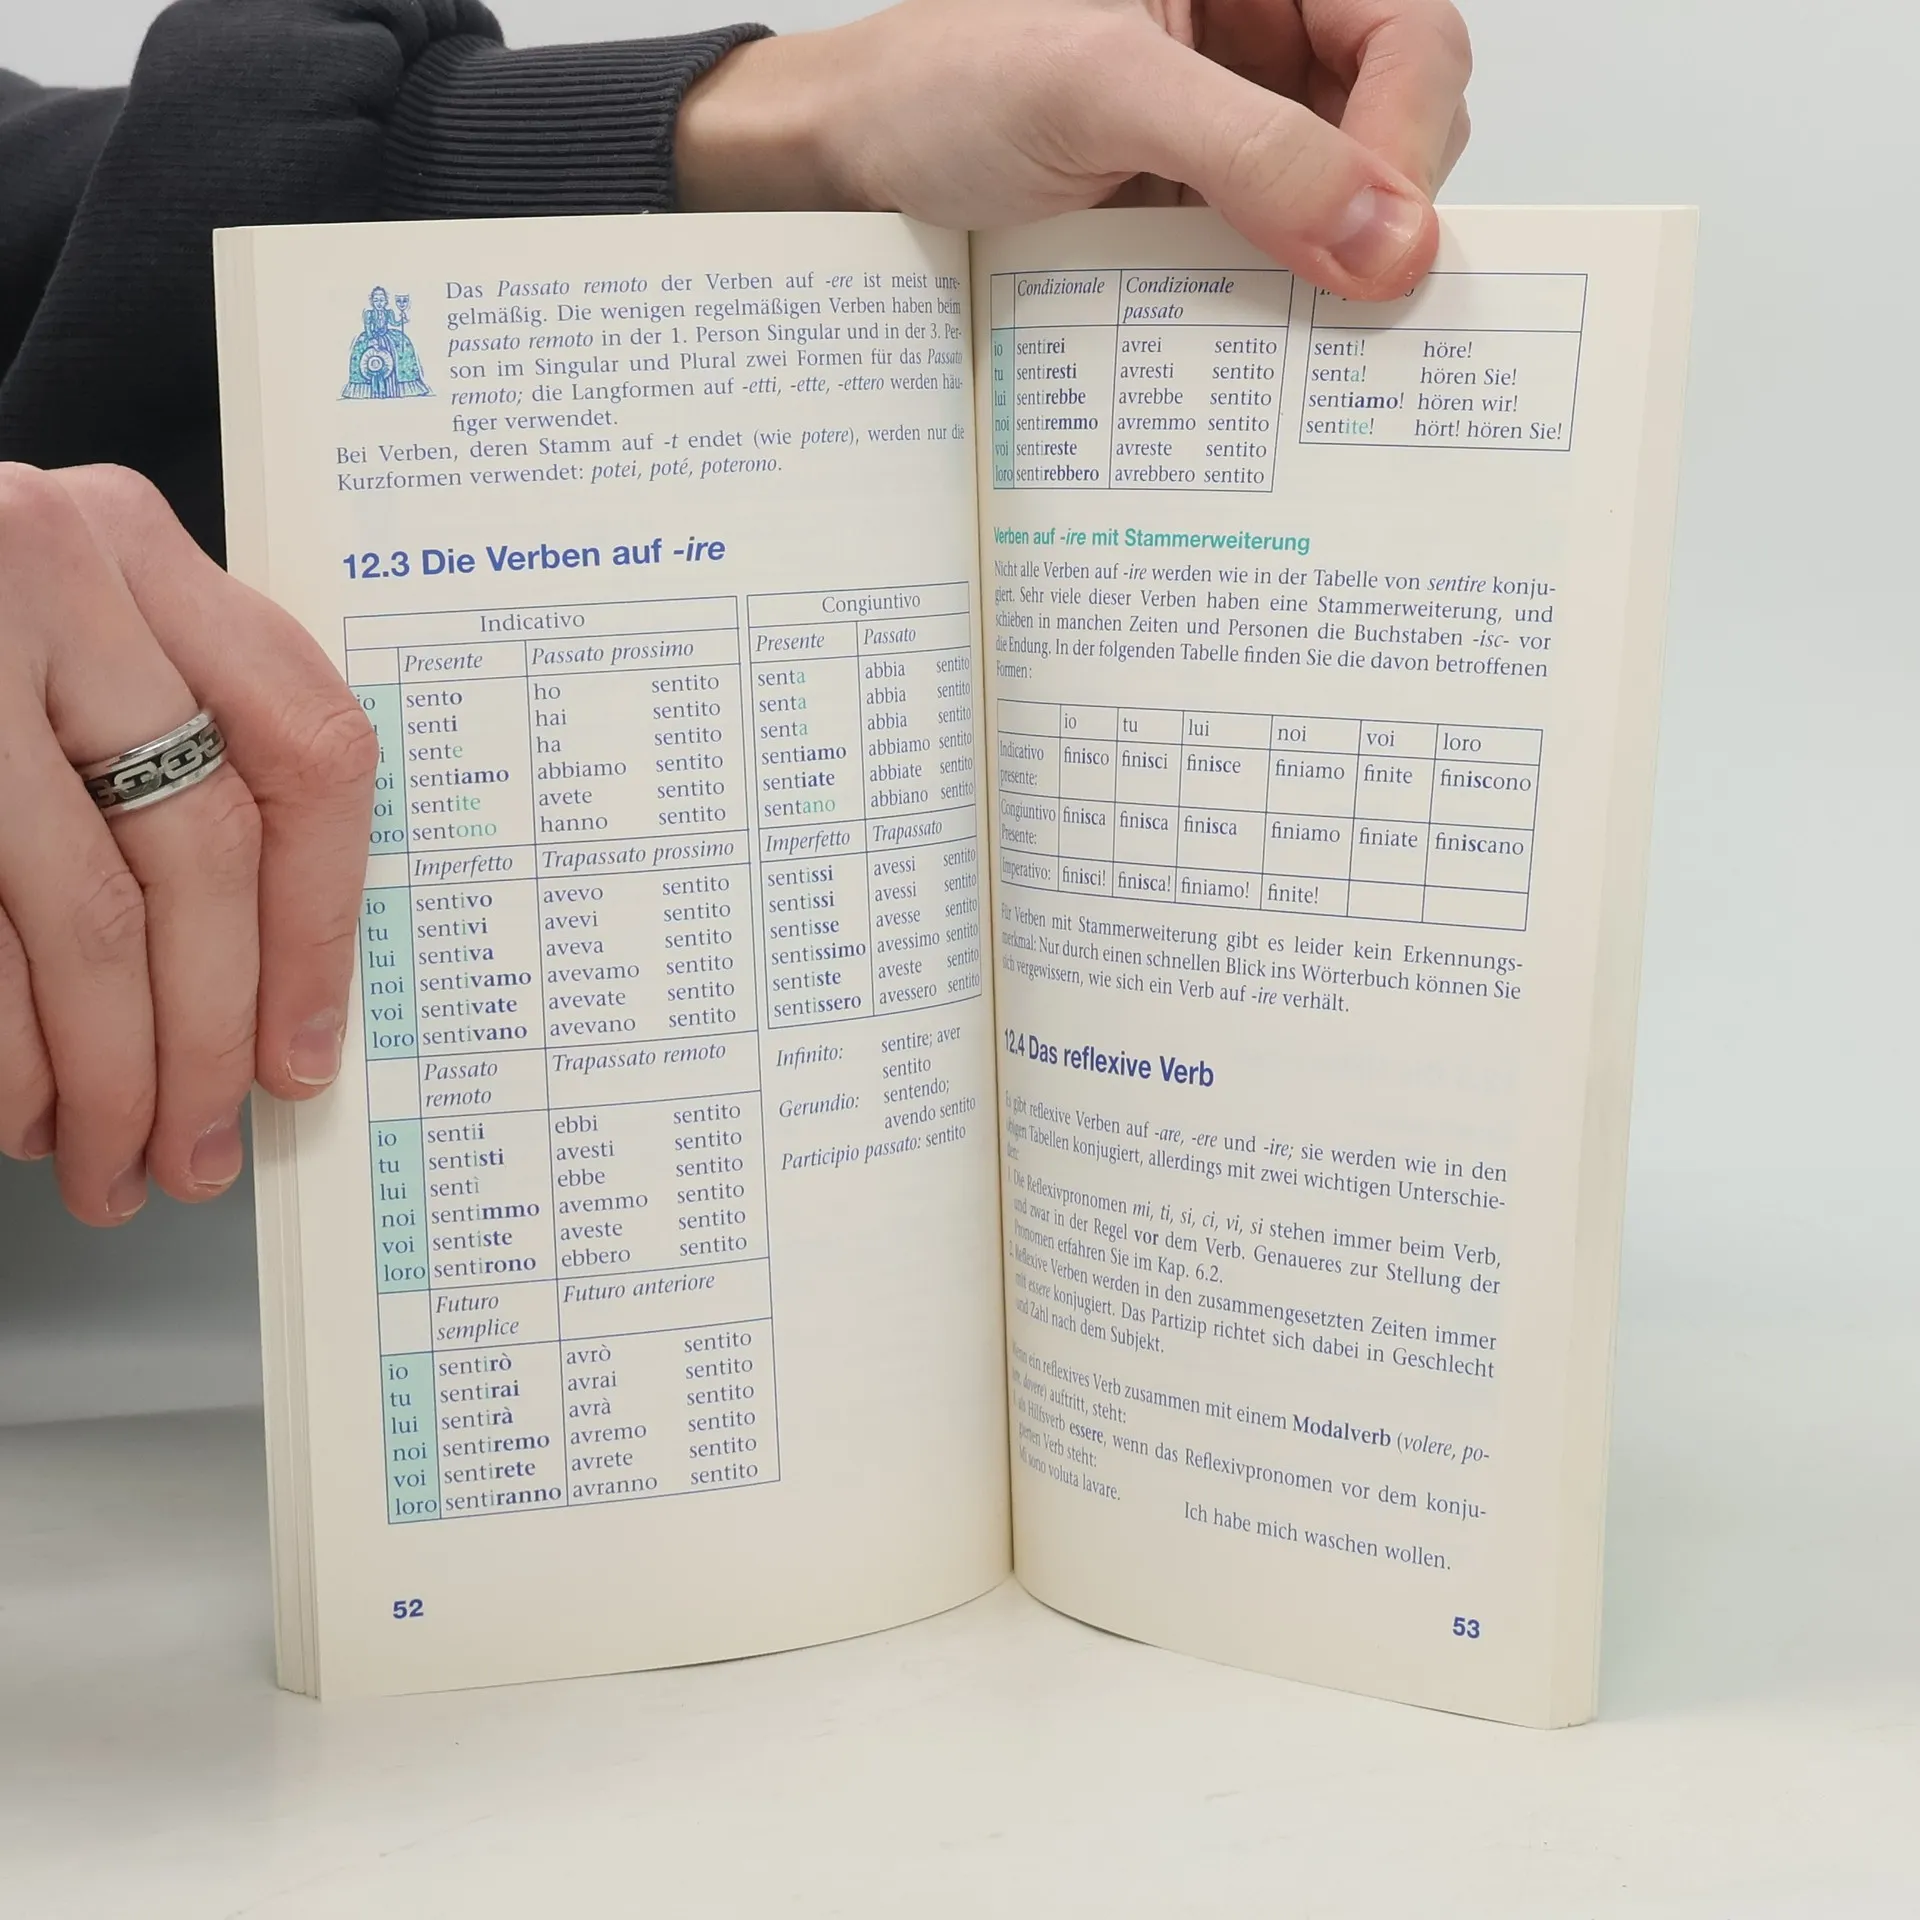 Das Passato remoto der Verben auf -ere ist meist unre-
gelmäßig. Die wenigen regelmäßigen Verben haben beim
passato remoto in der 1. Person Singular und in der 3. Per-
son im Singular und Plural zwei Formen für das Passato
remoto; die Langformen auf -etti, -ette, -ettero werden häu-
figer verwendet.
Bei Verben, deren Stamm auf -t endet (wie potere), werden nur die
Kurzformen verwendet: potei, poté, poterono.
12.3 Die Verben auf -ire
Indicativo
Presente Passato prossimo
io sento ho sentito
senti hai sentito
sente ha sentito
sentiamo abbiamo sentito
sentite avete sentito
sentono hanno sentito
Imperfetto Trapassato prossimo
io sentivo avevo sentito
tu sentivi avevi sentito
lui sentiva aveva sentito
noi sentivamo avevamo sentito
voi sentivate avevate sentito
loro sentivano avevano sentito
Passato remoto Trapassato remoto
io sentii ebbi sentito
tu sentisti avesti sentito
lui sentì ebbe sentito
noi sentimmo avemmo sentito
voi sentiste aveste sentito
loro sentirono ebbero sentito
Futuro semplice Futuro anteriore
io sentirò avrò sentito
tu sentirai avrai sentito
lui sentirà avrà sentito
noi sentiremo avremo sentito
voi sentirete avrete sentito
loro sentiranno avranno sentito
Congiuntivo
Presente Passato
senta abbia sentito
senta abbia sentito
senta abbia sentito
sentiamo abbiamo sentito
sentiate abbiate sentito
sentano abbiano sentito
Imperfetto Trapassato
sentissi avessi sentito
sentissi avessi sentito
sentisse avesse sentito
sentissimo avessimo sentito
sentiste aveste sentito
sentissero avessero sentito
Infinito: sentire; aver
sentito
Gerundio: sentendo;
avendo sentito
Participio passato: sentito
52
Condizionale Condizionale passato
io sentirei avrei sentito
tu sentiresti avresti sentito
lui sentirebbe avrebbe sentito
noi sentiremmo avremmo sentito
voi sentireste avreste sentito
loro sentirebbero avrebbero sentito
senti! höre!
senta! hören Sie!
sentiamo! hören wir!
sentite! hört! hören Sie!
Verben auf -ire mit Stammerweiterung
Nicht alle Verben auf -ire werden wie in der Tabelle von sentire konju-
giert. Sehr viele dieser Verben haben eine Stammerweiterung, und
schieben in manchen Zeiten und Personen die Buchstaben -isc- vor
die Endung. In der folgenden Tabelle finden Sie die davon betroffenen
Formen:
io tu lui noi voi loro
Indicativo presente: finisco finisci finisce finiamo finite finiscono
Congiuntivo Presente: finisca finisca finisca finiamo finiate finiscano
Imperativo: finisci! finisca! finiamo! finite!
Für Verben mit Stammerweiterung gibt es leider kein Erkennungs-
merkmal: Nur durch einen schnellen Blick ins Wörterbuch können Sie
sich vergewissern, wie sich ein Verb auf -ire verhält.
12.4 Das reflexive Verb
Es gibt reflexive Verben auf -are, -ere und -ire; sie werden wie in den
obigen Tabellen konjugiert, allerdings mit zwei wichtigen Unterschie-
den:
1. Die Reflexivpronomen mi, ti, si, ci, vi, si stehen immer beim Verb,
und zwar in der Regel vor dem Verb. Genaueres zur Stellung der
Pronomen erfahren Sie im Kap. 6.2.
2. Reflexive Verben werden in den zusammengesetzten Zeiten immer
mit essere konjugiert. Das Partizip richtet sich dabei in Geschlecht
und Zahl nach dem Subjekt.
Wenn ein reflexives Verb zusammen mit einem Modalverb (volere, po-
dovere) auftritt, steht:
als Hilfsverb essere, wenn das Reflexivpronomen vor dem konju-
gierten Verb steht:
Mi sono voluta lavare. Ich habe mich waschen wollen.
53